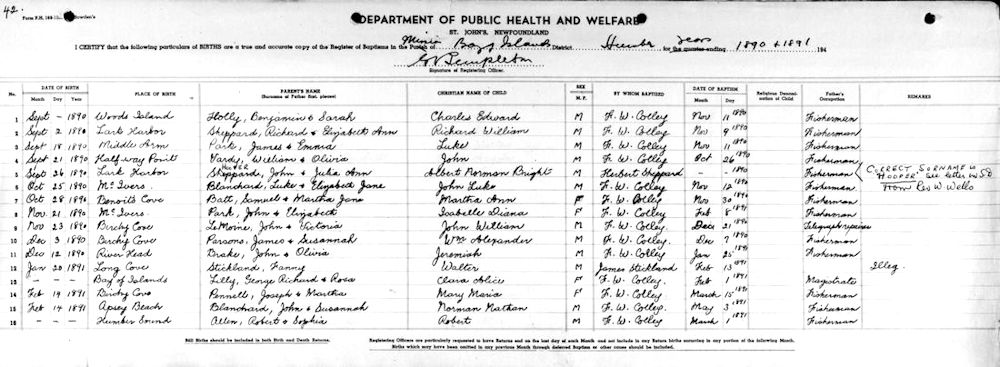 42.
Form P.H. 148-10
DEPARTMENT OF PUBLIC HEALTH AND WELFARE
ST. JOHN'S, NEWFOUNDLAND
I CERTIFY that the following particulars of BIRTHS are a true and accurate copy of the Register of Baptisms in the Parish of Bay of Islands District Humber for the quarter ending years 1890 & 1891 194
Templeton
Signature of Registering Officer.
No. DATE OF BIRTH Month Day Year PLACE OF BIRTH PARENT'S NAME (Surname of Father first, please) CHRISTIAN NAME OF CHILD SEX M. F. BY WHOM BAPTIZED DATE OF BAPTISM Month Day Year Religious Denomination of Child Father's Occupation REMARKS
1 Sept - 1890 Woods Island Holly, Benjamin & Sarah Charles Edward M F. W. Colley Nov 11 1890 Fisherman
2 Sept 2 1890 Lark Harbor Sheppard, Richard & Elizabeth Ann Richard William M F. W. Colley Nov 9 1890 Fisherman
3 Sept 18 1890 Middle Arm Park, James & Emma Luke M F. W. Colley Nov 11 1890 Fisherman
4 Sept 21 1890 Half-way Point Vardy, William & Olivia John M F. W. Colley Oct 26 1890 Fisherman
5 Sept 26 1890 Lark Harbor Sheppard, HOOPER John & Julia Ann Albert Norman Knight M Herbert Sheppard - - Fisherman CORRECT SURNAME IS HOOPER See letter in SD from Rev W. Wells
6 Oct 25 1890 McIvers Blanchard, Luke & Elizabeth Jane John Luke M F. W. Colley Nov 12 1890 Fisherman
7 Oct 28 1890 Benoits Cove Batt, Samuel & Martha Jane Martha Ann F F. W. Colley Nov 30 1890 Fisherman
8 Nov 21 1890 McIvers Park, John & Elizabeth Isabelle Diana F F. W. Colley Feb 8 1891 Fisherman
9 Nov 23 1890 Birchy Cove LeMoine, John & Victoria John William M F. W. Colley Dec 21 1890 Telegraph repairer
10 Dec 3 1890 Birchy Cove Parsons, James & Susannah Wm Alexander M F. W. Colley Dec 7 1890 Fisherman
11 Dec 12 1890 River Head Brake, John & Olivia Jeremiah M F. W. Colley Jan 25 1891 Fisherman
12 Jan 20 1891 Long Cove Stickland, Fanny Walter M James Stickland Feb 13 1891 Illeg.
13 - - - Bay of Islands Lilly, George Richard & Rosa Clara Alice F F. W. Colley Feb 1 1891 Magistrate
14 Feb 19 1891 Birchy Cove Pennell, Joseph & Martha Mary Maria F F. W. Colley March 15 1891 Fisherman
15 Feb 14 1891 Apsey Beach Blanchard, John & Susannah Norman Nathan M F. W. Colley May 3 1891 Fisherman
16 - - - Humber Sound Allen, Robert & Sophia Robert M F. W. Colley March 1 1891 Fisherman
Still Births should be included in both Birth and Death Returns.
Registering Officers are particularly requested to have Returns end on the last day of each Month and not include in any Return births occurring in any portion of the following Month.
Births which may have been omitted in any previous Month through deferred Baptism or other cause should be included.